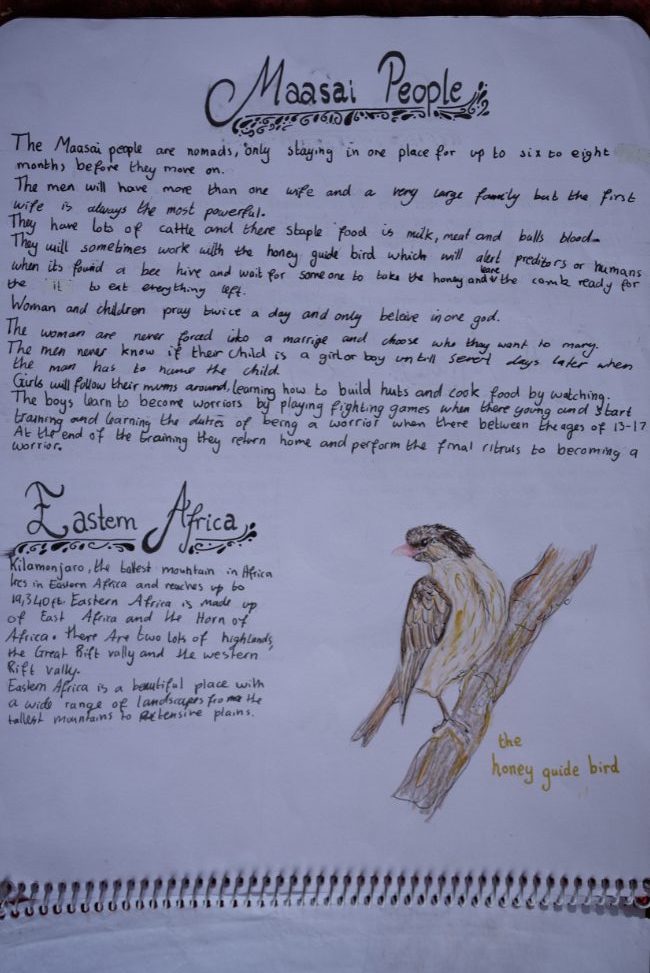 Maasai People
The Maasai people are nomads, only staying in one place for up to six to eight
months before they move on.
The men will have more than one wife and a very large family but the first
wife is always the most powerful.
They have lots of cattle and there staple food is milk, meat and bulls blood.
They will sometimes work with the honey guide bird which will alert preditors or humans
when its found a bee hive and wait for someone to take the honey and leave the comb ready for
the to eat everything left.
Woman and children pray twice a day and only beleive in one god.
The woman are never forced into a marrige and choose who they want to marry.
The men never know if their child is a girl or boy untill days later when
the man has to name the child.
Girls will follow their mums around, learning how to build huts and cook food by watching.
The boys learn to become worriors by playing fighting games when there young and start
training and learning the duties of being a worrior when there between the ages of 13-17
At the end of the training they return home and perform the final rituals to becoming a
worrior.
Eastern Africa
Kilamonjaro, the tallest mountain in Africa
lies in Eastern Africa and reaches up to
19,340ft. Eastern Africa is made up
of East Africa and the Horn of
Africa. there Are two lots of highlands,
the Great Rift vally and the western
Rift vally.
Eastern Africa is a beautiful place with
a wide range of landscapes from the
tallest mountains to extensive plains.
the
honey guide bird